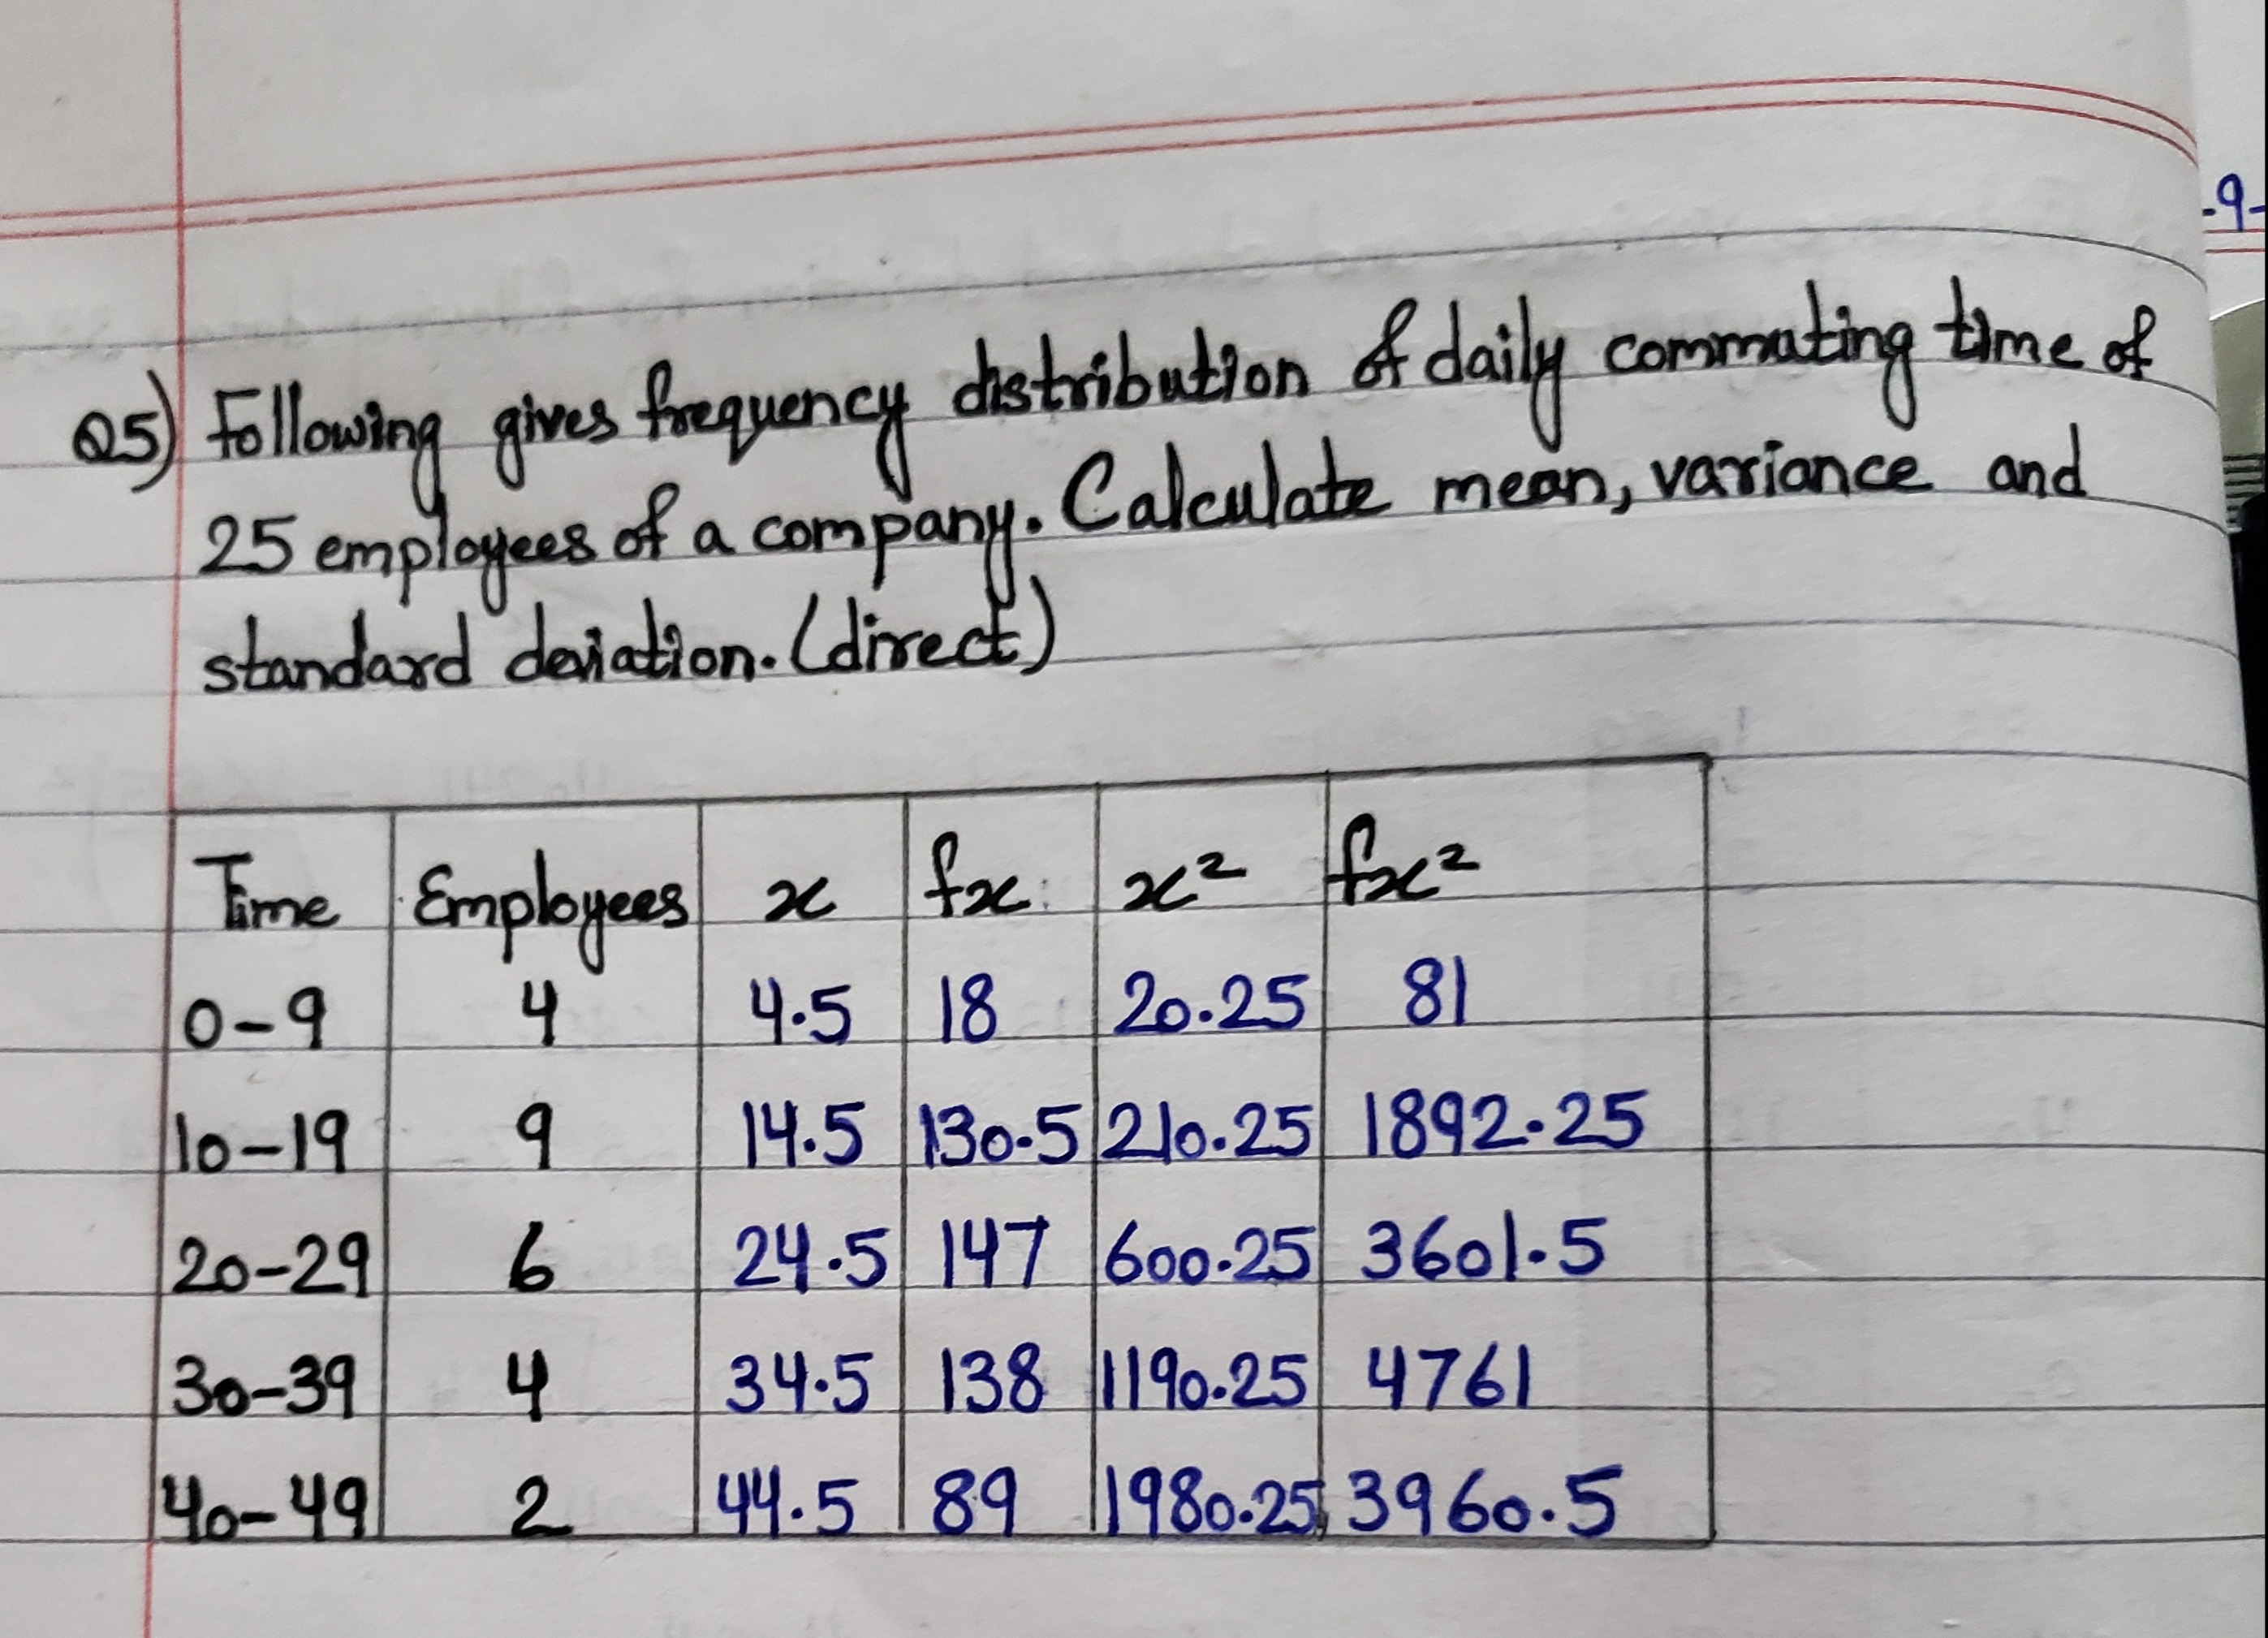 -9-
Q5) Following gives frequency distribution of daily commuting time of
25 employees of a company. Calculate mean, variance and
standard deviation. (direct)
Time Employees x fx x² fx²
0-9 4 4.5 18 20.25 81
10-19 9 14.5 130.5 210.25 1892.25
20-29 6 24.5 147 600.25 3601.5
30-39 4 34.5 138 1190.25 4761
40-49 2 44.5 89 1980.25 3960.5